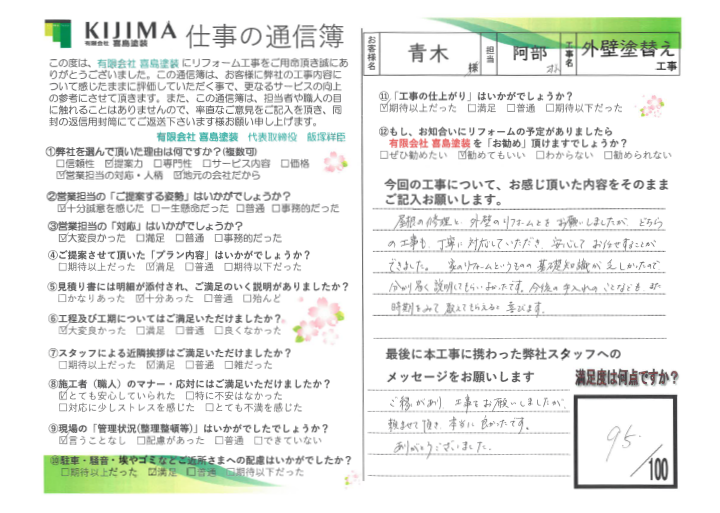 KIJIMA
有限会社 喜島塗装
仕事の通信簿
この度は、有限会社 喜島塗装 にリフォーム工事をご用命頂き誠にあ
りがとうございました。この通信簿は、お客様に弊社の工事内容に
ついて感じたままに評価していただく事で、更なるサービスの向上
の参考にさせて頂きます。また、この通信簿は、担当者や職人の目
に触れることはありませんので、率直なご意見をご記入を頂き、同
封の返信用封筒にてご返送下さいます様お願い申し上げます。
有限会社 喜島塗装 代表取締役 飯塚祥臣
①弊社を選んで頂いた理由は何ですか?(複数可)
□信頼性 ☑提案力 □専門性 □サービス内容 □価格
☑営業担当の対応・人柄 ☑地元の会社だから
②営業担当の「ご提案する姿勢」はいかがでしょうか?
☑十分誠意を感じた □一生懸命だった □普通 □事務的だった
③営業担当の「対応」はいかがでしょうか?
☑大変良かった □満足 □普通 □事務的だった
④ご提案させて頂いた「プラン内容」はいかがでしょうか?
□期待以上だった ☑満足 □普通 □期待以下だった
⑤見積り書には明細が添付され、ご満足のいく説明がありましたか?
□かなりあった ☑十分あった □普通 □殆んど
⑥工程及び工期についてはご満足いただけましたか?
☑大変良かった □満足 □普通 □良くなかった
⑦スタッフによる近隣挨拶はご満足いただけましたか?
□期待以上だった ☑満足 □普通 □雑だった
⑧施工者(職人)のマナー・応対にはご満足いただけましたか?
☑とても安心していられた □特に不安はなかった
□対応に少しストレスを感じた □とても不満を感じた
⑨現場の「管理状況(整理整頓等)」はいかがでしたでしょうか?
☑言うことなし □配慮があった □普通 □できていない
⑩駐車・騒音・埃やゴミなどご近所さまへの配慮はいかがでしたか?
□期待以上だった ☑満足 □普通 □期待以下だった
お客様名 青木 様 担当 阿部 工事名 外壁塗替え 工事
⑪「工事の仕上がり」はいかがでしょうか?
☑期待以上だった □満足 □普通 □期待以下だった
⑫もし、お知合いにリフォームの予定がありましたら
有限会社 喜島塗装 を「お勧め」頂けますでしょうか?
□ぜひ勧めたい ☑勧めてもいい □わからない □勧められない
今回の工事について、お感じ頂いた内容をそのまま
ご記入お願いします。
屋根の修理と、外壁のリフォームとをお願いしましたが、どちら
の工事も、丁寧に対応していただき、安心してお任せすることが
できました。 家のリフォームというものの基礎知識が乏しかったので
分り易く説明してもらいよかったです。今後の手入れのことなども、また
時期をみて教えてもらえると喜びます。
最後に本工事に携わった弊社スタッフへの
メッセージをお願いします
ご縁があり 工事をお願いしましたが、
頼ませて頂き、本当に良かったです。
ありがとうございました。
満足度は何点ですか?
95
/100